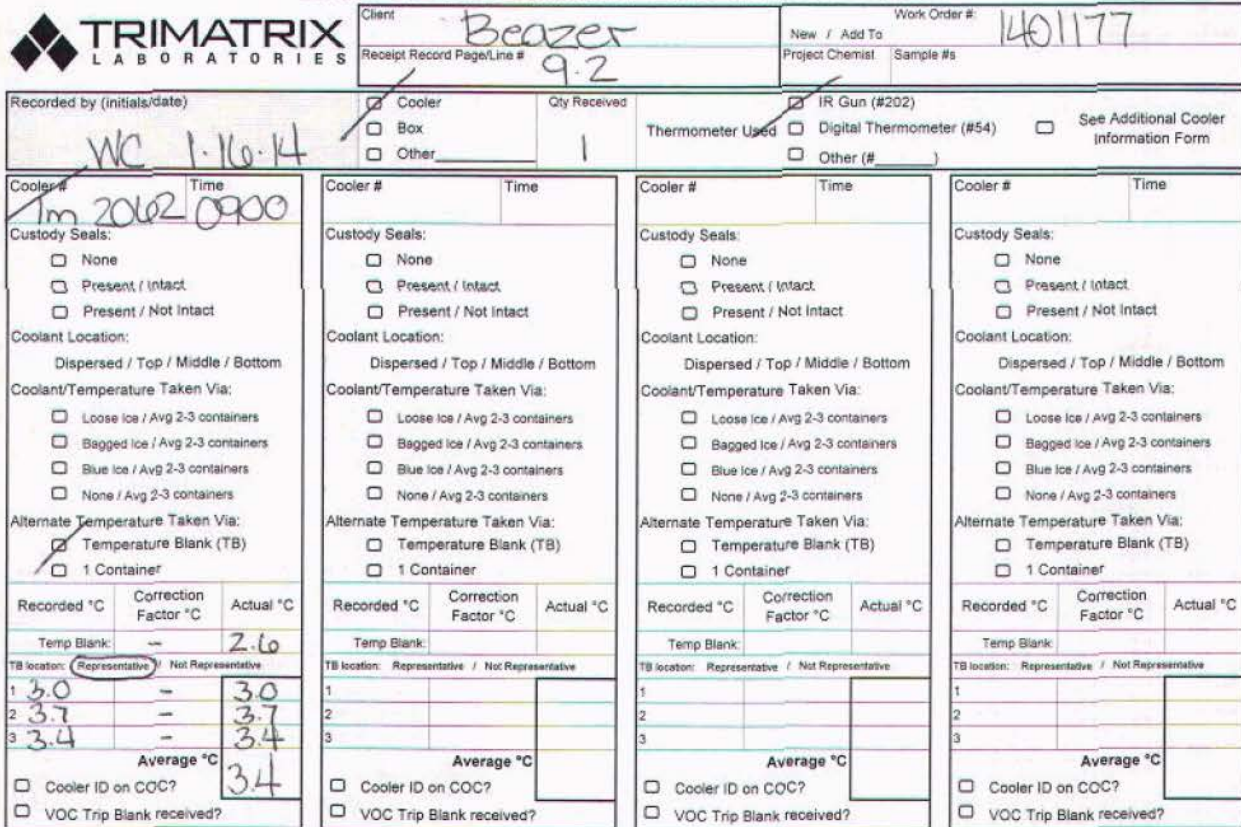 TRIMATRIX
LABORATORIES
Client
Beazer
Receipt Record Page/Line #
9.2
New / Add To
Work Order #:
1401177
Project Chemist
Sample #s
Recorded by (initials/date)
WC 1.16.14
Cooler
Box
Other
Qty Received
1
Thermometer Used
IR Gun (#202)
Digital Thermometer (#54)
Other (#______)
See Additional Cooler
Information Form
Cooler #
Time
Tm 2062 0900
Custody Seals:
None
Present / Intact
Present / Not Intact
Coolant Location:
Dispersed / Top / Middle / Bottom
Coolant/Temperature Taken Via:
Loose Ice / Avg 2-3 containers
Bagged Ice / Avg 2-3 containers
Blue Ice / Avg 2-3 containers
None / Avg 2-3 containers
Alternate Temperature Taken Via:
Temperature Blank (TB)
1 Container
Recorded °C
Correction
Factor °C
Actual °C
Temp Blank: - 2.6
TB location: Representative / Not Representative
1 3.0 - 3.0
2 3.7 - 3.7
3 3.4 - 3.4
Average °C
3.4
Cooler ID on COC?
VOC Trip Blank received?
Cooler #
Time
Custody Seals:
None
Present / Intact
Present / Not Intact
Coolant Location:
Dispersed / Top / Middle / Bottom
Coolant/Temperature Taken Via:
Loose Ice / Avg 2-3 containers
Bagged Ice / Avg 2-3 containers
Blue Ice / Avg 2-3 containers
None / Avg 2-3 containers
Alternate Temperature Taken Via:
Temperature Blank (TB)
1 Container
Recorded °C
Correction
Factor °C
Actual °C
Temp Blank:
TB location: Representative / Not Representative
1
2
3
Average °C
Cooler ID on COC?
VOC Trip Blank received?
Cooler #
Time
Custody Seals:
None
Present / Intact
Present / Not Intact
Coolant Location:
Dispersed / Top / Middle / Bottom
Coolant/Temperature Taken Via:
Loose Ice / Avg 2-3 containers
Bagged Ice / Avg 2-3 containers
Blue Ice / Avg 2-3 containers
None / Avg 2-3 containers
Alternate Temperature Taken Via:
Temperature Blank (TB)
1 Container
Recorded °C
Correction
Factor °C
Actual °C
Temp Blank:
TB location: Representative / Not Representative
1
2
3
Average °C
Cooler ID on COC?
VOC Trip Blank received?
Cooler #
Time
Custody Seals:
None
Present / Intact
Present / Not Intact
Coolant Location:
Dispersed / Top / Middle / Bottom
Coolant/Temperature Taken Via:
Loose Ice / Avg 2-3 containers
Bagged Ice / Avg 2-3 containers
Blue Ice / Avg 2-3 containers
None / Avg 2-3 containers
Alternate Temperature Taken Via:
Temperature Blank (TB)
1 Container
Recorded °C
Correction
Factor °C
Actual °C
Temp Blank:
TB location: Representative / Not Representative
1
2
3
Average °C
Cooler ID on COC?
VOC Trip Blank received?